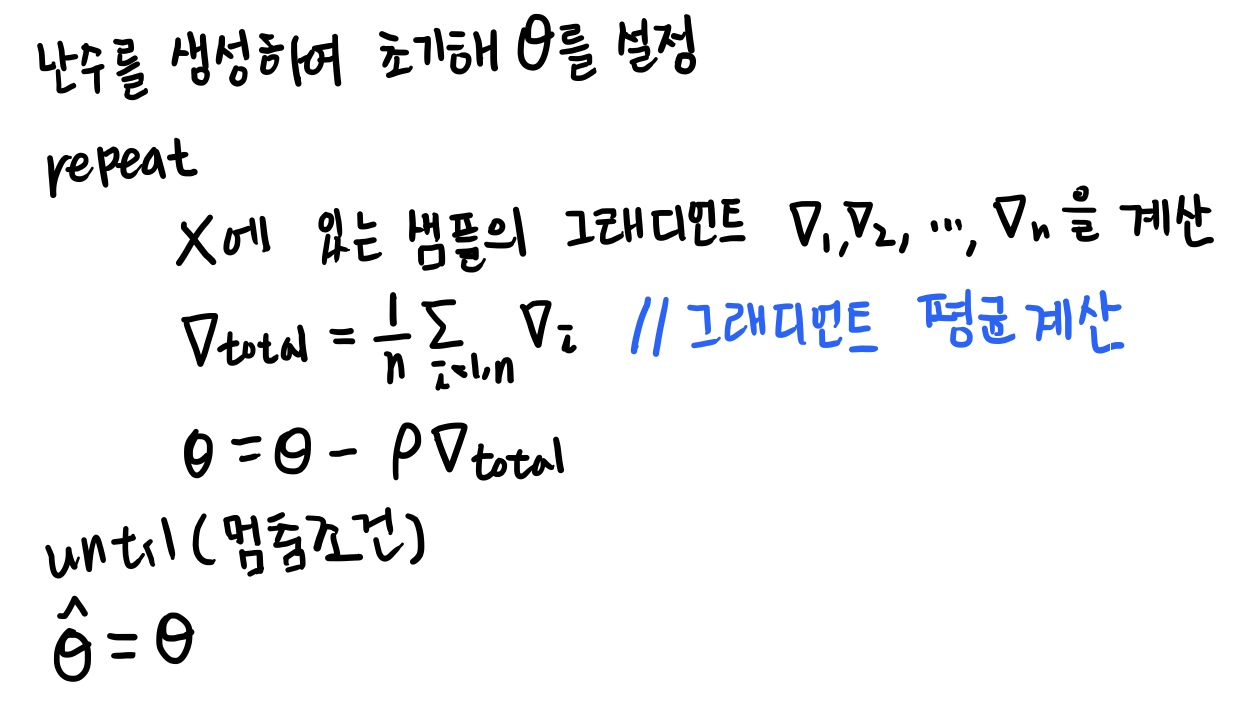 난수를 생성하여 초기해 θ를 설정
repeat
X에 있는 샘플의 그래디언트 ∇₁,∇₂, ⋯, ∇ₙ을 계산
∇total = 1/n ∑i=1,n ∇i // 그래디언트 평균 계산
θ = θ - ρ∇total
until (멈춤조건)
θ̂ = θ